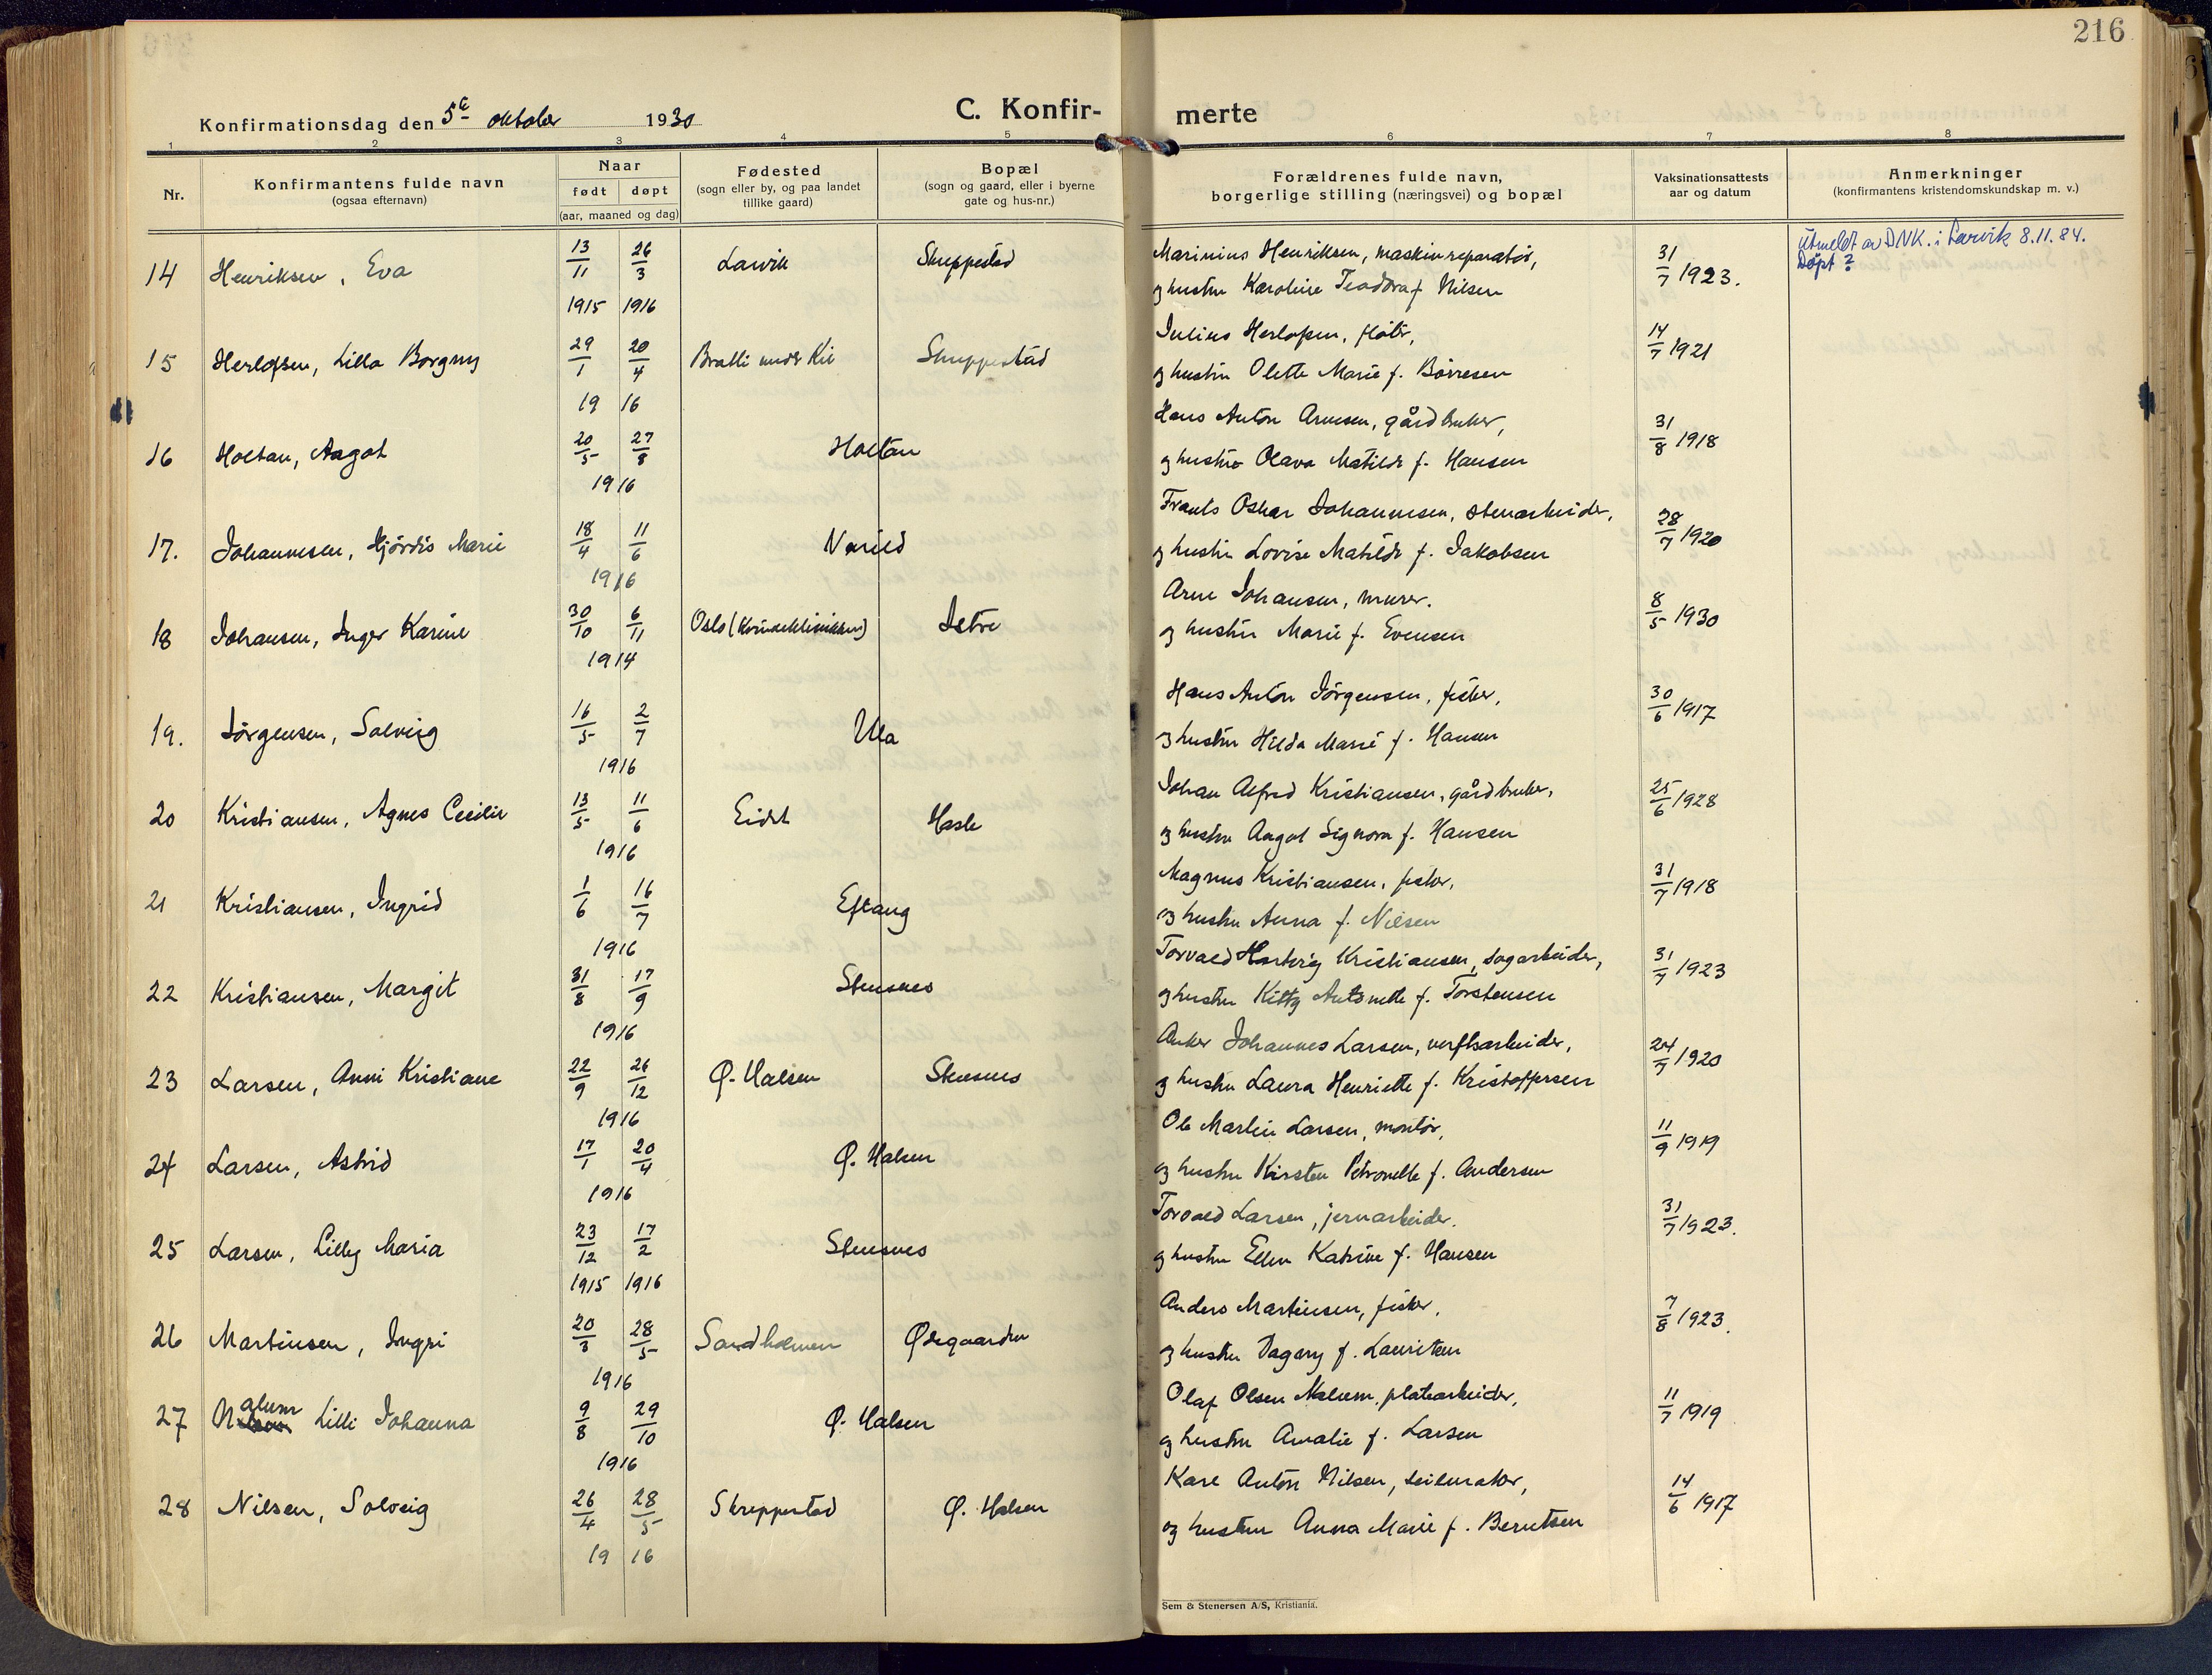 216
Konfirmationsdag den 5te oktober 1930
C. Konfir-
merte
1 2 3 4 5 6 7 8
Nr.
Konfirmantens fulde navn
(ogsaa efternavn)
Naar
født døpt
(aar, maaned og dag)
Fødested
(sogn eller by, og paa landet
tillike gaard)
Bopæl
(sogn og gaard, eller i byerne
gate og hus-nr.)
Forældrenes fulde navn,
borgerlige stilling (næringsvei) og bopæl
Vaksinationsattests
aar og datum
Anmerkninger
(konfirmantens kristendomskundskap m. v.)
14 Henriksen, Eva 13/11 1915 26/3 1916 Larvik Skreppestad Marinius Henriksen, maskinreparatør, 31/7 1923. Utmeldt av DNK. i Larvik 8.11.84.
og hustru Karoline Teodora f. Nilsen Døpt?
15 Herlofsen, Lilla Borgny 29/1 20/4 1916 Bratli under Kil Skreppestad Julius Herlofsen, fløter, 14/7 1921
og hustru Olette Marie f. Børresen
16 Holtan, Aagot 20/5 27/8 1916 Holtan Hans Anton Arnesen, gårdbruker, 31/8 1918
og hustru Olava Matilde f. Hansen
17. Johannesen, Hjørdis Marie 18/4 11/6 1916 Varild Frants Oskar Johannesen, stenarbeider, 28/7 1920
og hustru Lovise Matilde f. Jakobsen
18 Johansen, Inger Karine 30/10 6/11 1914 Oslo (Kvindeklinikken) Istre Arne Johansen, murer. 8/5 1930
og hustru Marie f. Evensen
19. Jørgensen, Solveig 16/5 2/7 1916 Ula Hans Anton Jørgensen, fisker, 30/6 1917
og hustru Hilda Marie f. Hansen
20 Kristiansen, Agnes Cecilie 13/5 11/6 1916 Eidet Hasle Johan Alfred Kristiansen, gårdbruker, 25/6 1928
og hustru Aagot Signora f. Hansen
21 Kristiansen, Ingrid 1/6 16/7 1916 Eftang Magnus Kristiansen, fisker, 31/7 1918
og hustru Anna f. Nilsen
22 Kristiansen, Margit 31/8 17/9 1916 Stensnes Torvald Kristiansen, sagarbeider, 31/7 1923
og hustru Kitty Antonette f. Torstensen
23 Larsen, Anni Kristiane 22/9 26/12 1916 Ø. Halsen Stensnes Anker Johannes Larsen, verftsarbeider, 24/7 1920
og hustru Laura Henriette f. Kristoffersen
24 Larsen, Astrid 17/1 20/4 1916 Ø. Halsen Ole Martin Larsen, montør, 11/9 1919
og hustru Kirsten Petronelle f. Andersen
25 Larsen, Lilly Maria 23/12 1915 17/2 1916 Stensnes Torvald Larsen, jernarbeider. 31/7 1923.
og hustru Ellen Katrine f. Hansen
26 Martinsen, Ingri 20/3 28/5 1916 Sandholmen Ødegaarden Anders Martinsen, fisker, 7/8 1923.
og hustru Dagny f. Lauritsen
27 Nalum Lilli Johanna 9/8 29/10 1916 Ø. Halsen Olaf Olsen Nalum, platearbeider, 11/7 1919
og hustru Amalie f. Larsen
28 Nilsen, Solveig 26/4 28/5 1916 Skreppestad Ø. Halsen Karl Anton Nilsen, seilmaker, 14/6 1917
og hustru Anna Marie f. Berntsen
Sem & Stenersen A/S, Kristiania.